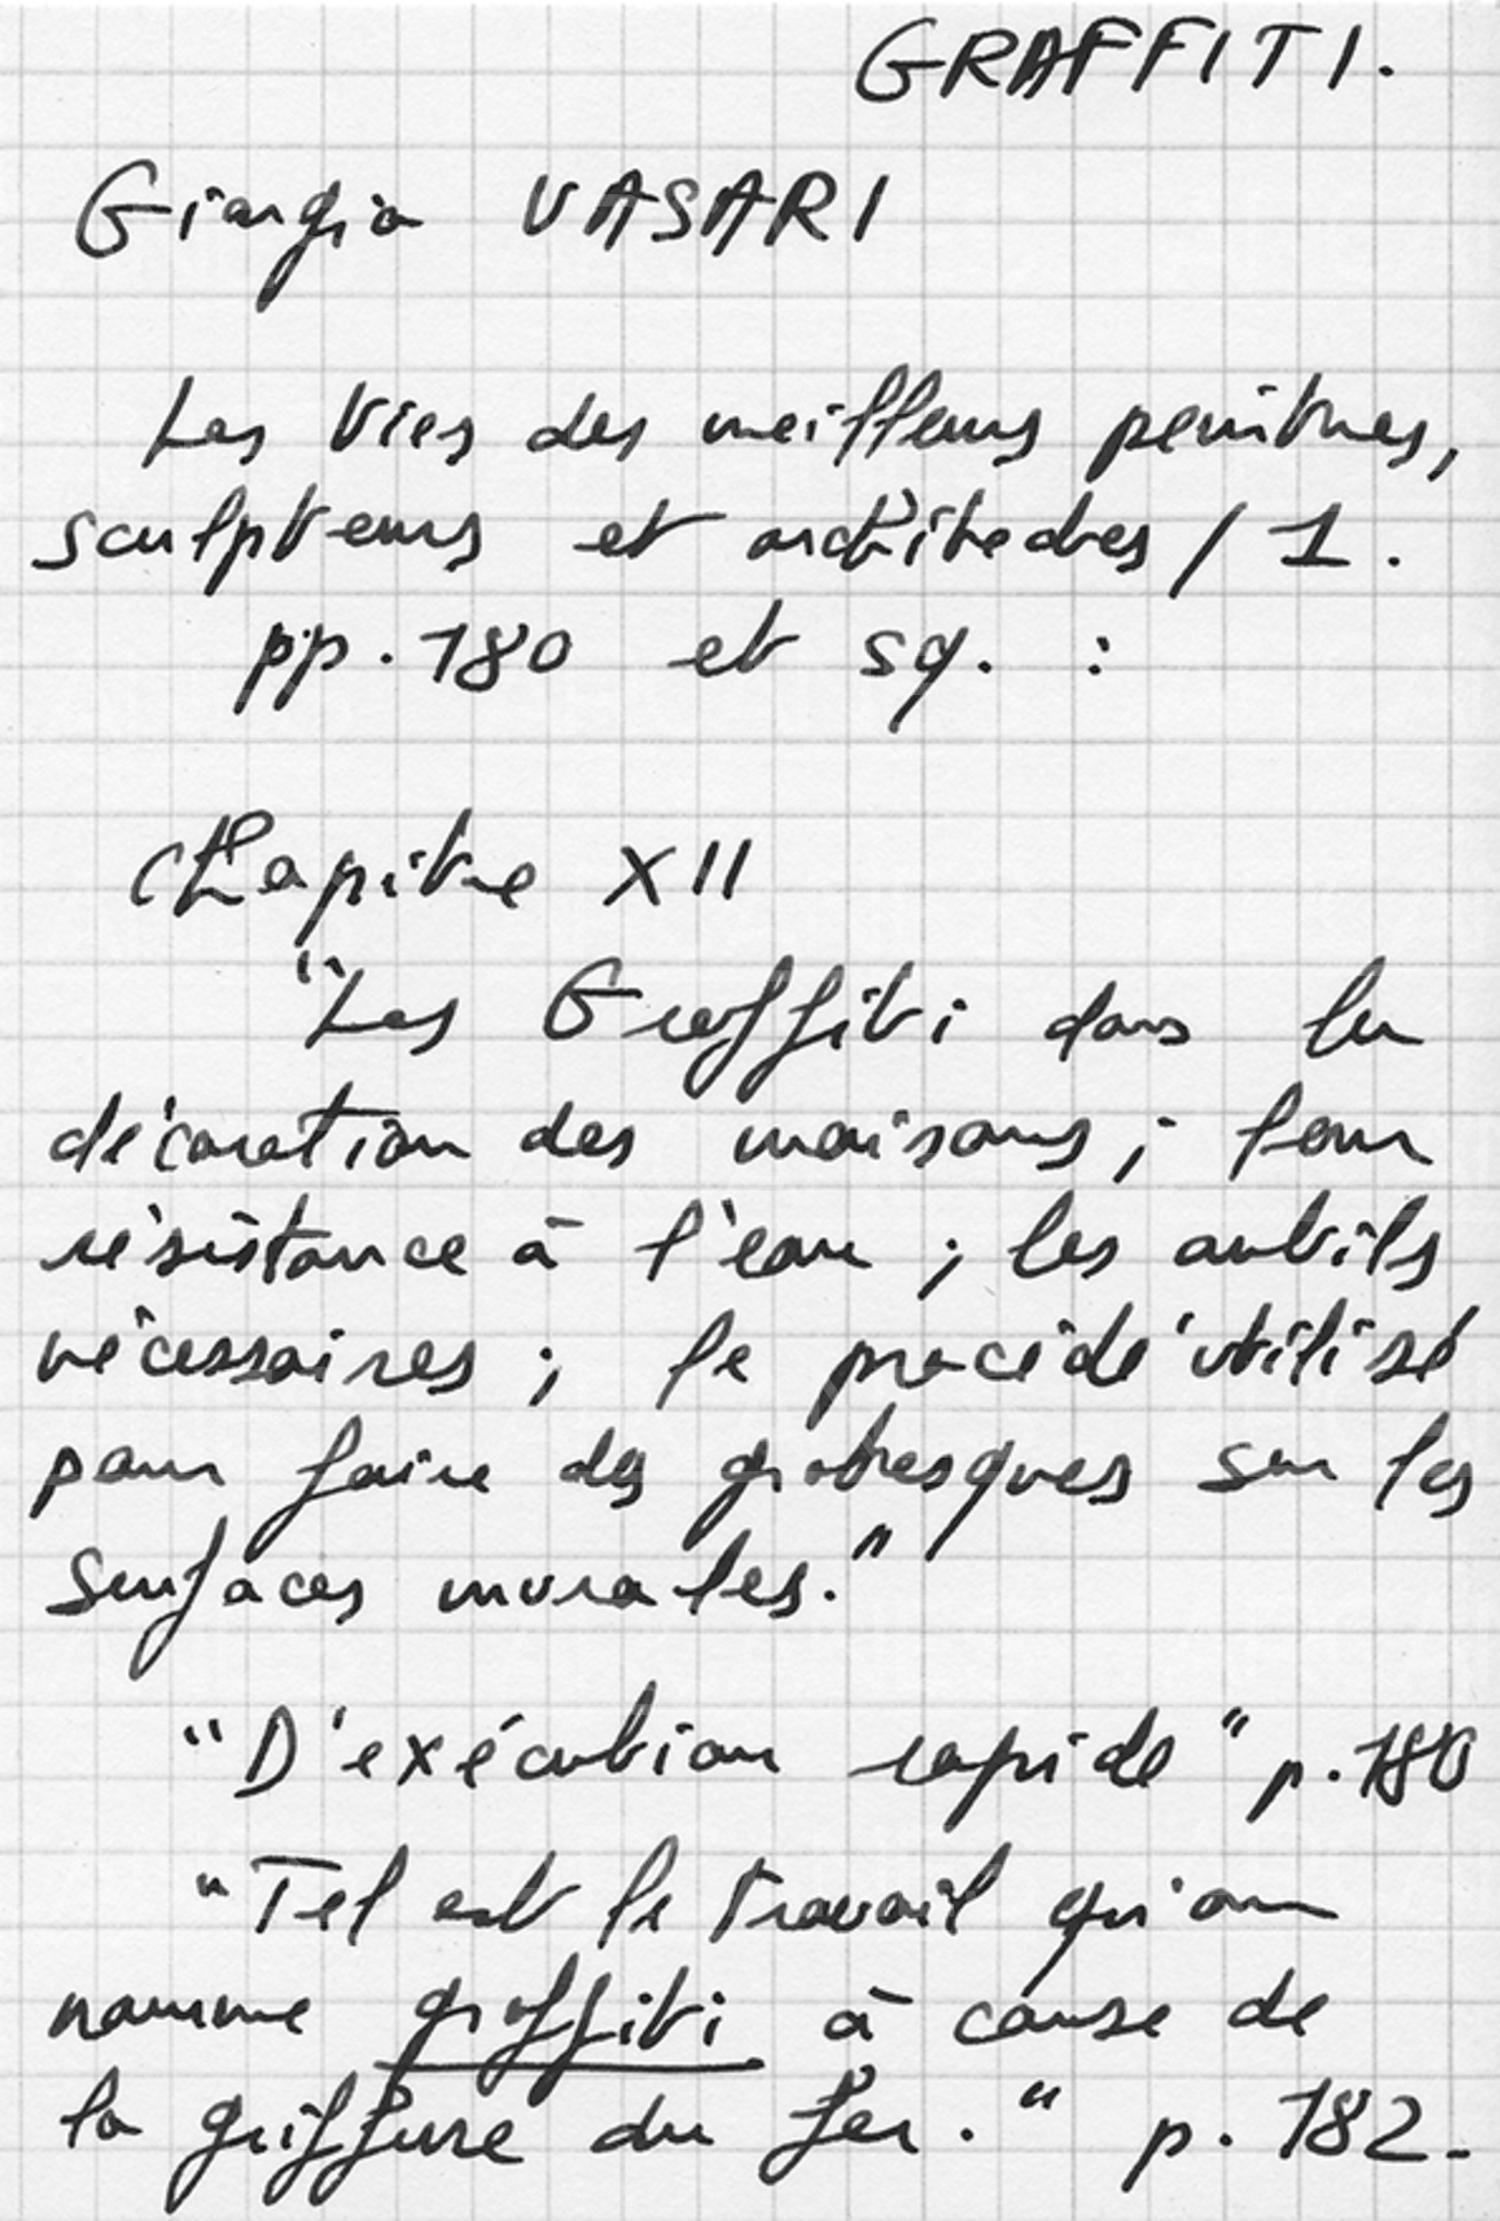 GRAFFITI.
Giorgio VASARI
Les Vies des meilleurs peintres,
sculpteurs et architectes / 1.
pp. 180 et sq. :
CHapitre XII
"Les Graffiti dans la
décoration des maisons ; leur
résistance à l'eau ; les outils
nécessaires ; le procédé utilisé
pour faire des grotesques sur les
surfaces murales."
"D'exécution rapide" p. 180
"Tel est le travail qu'on
nomme graffiti à cause de
la griffure du fer." p. 182.